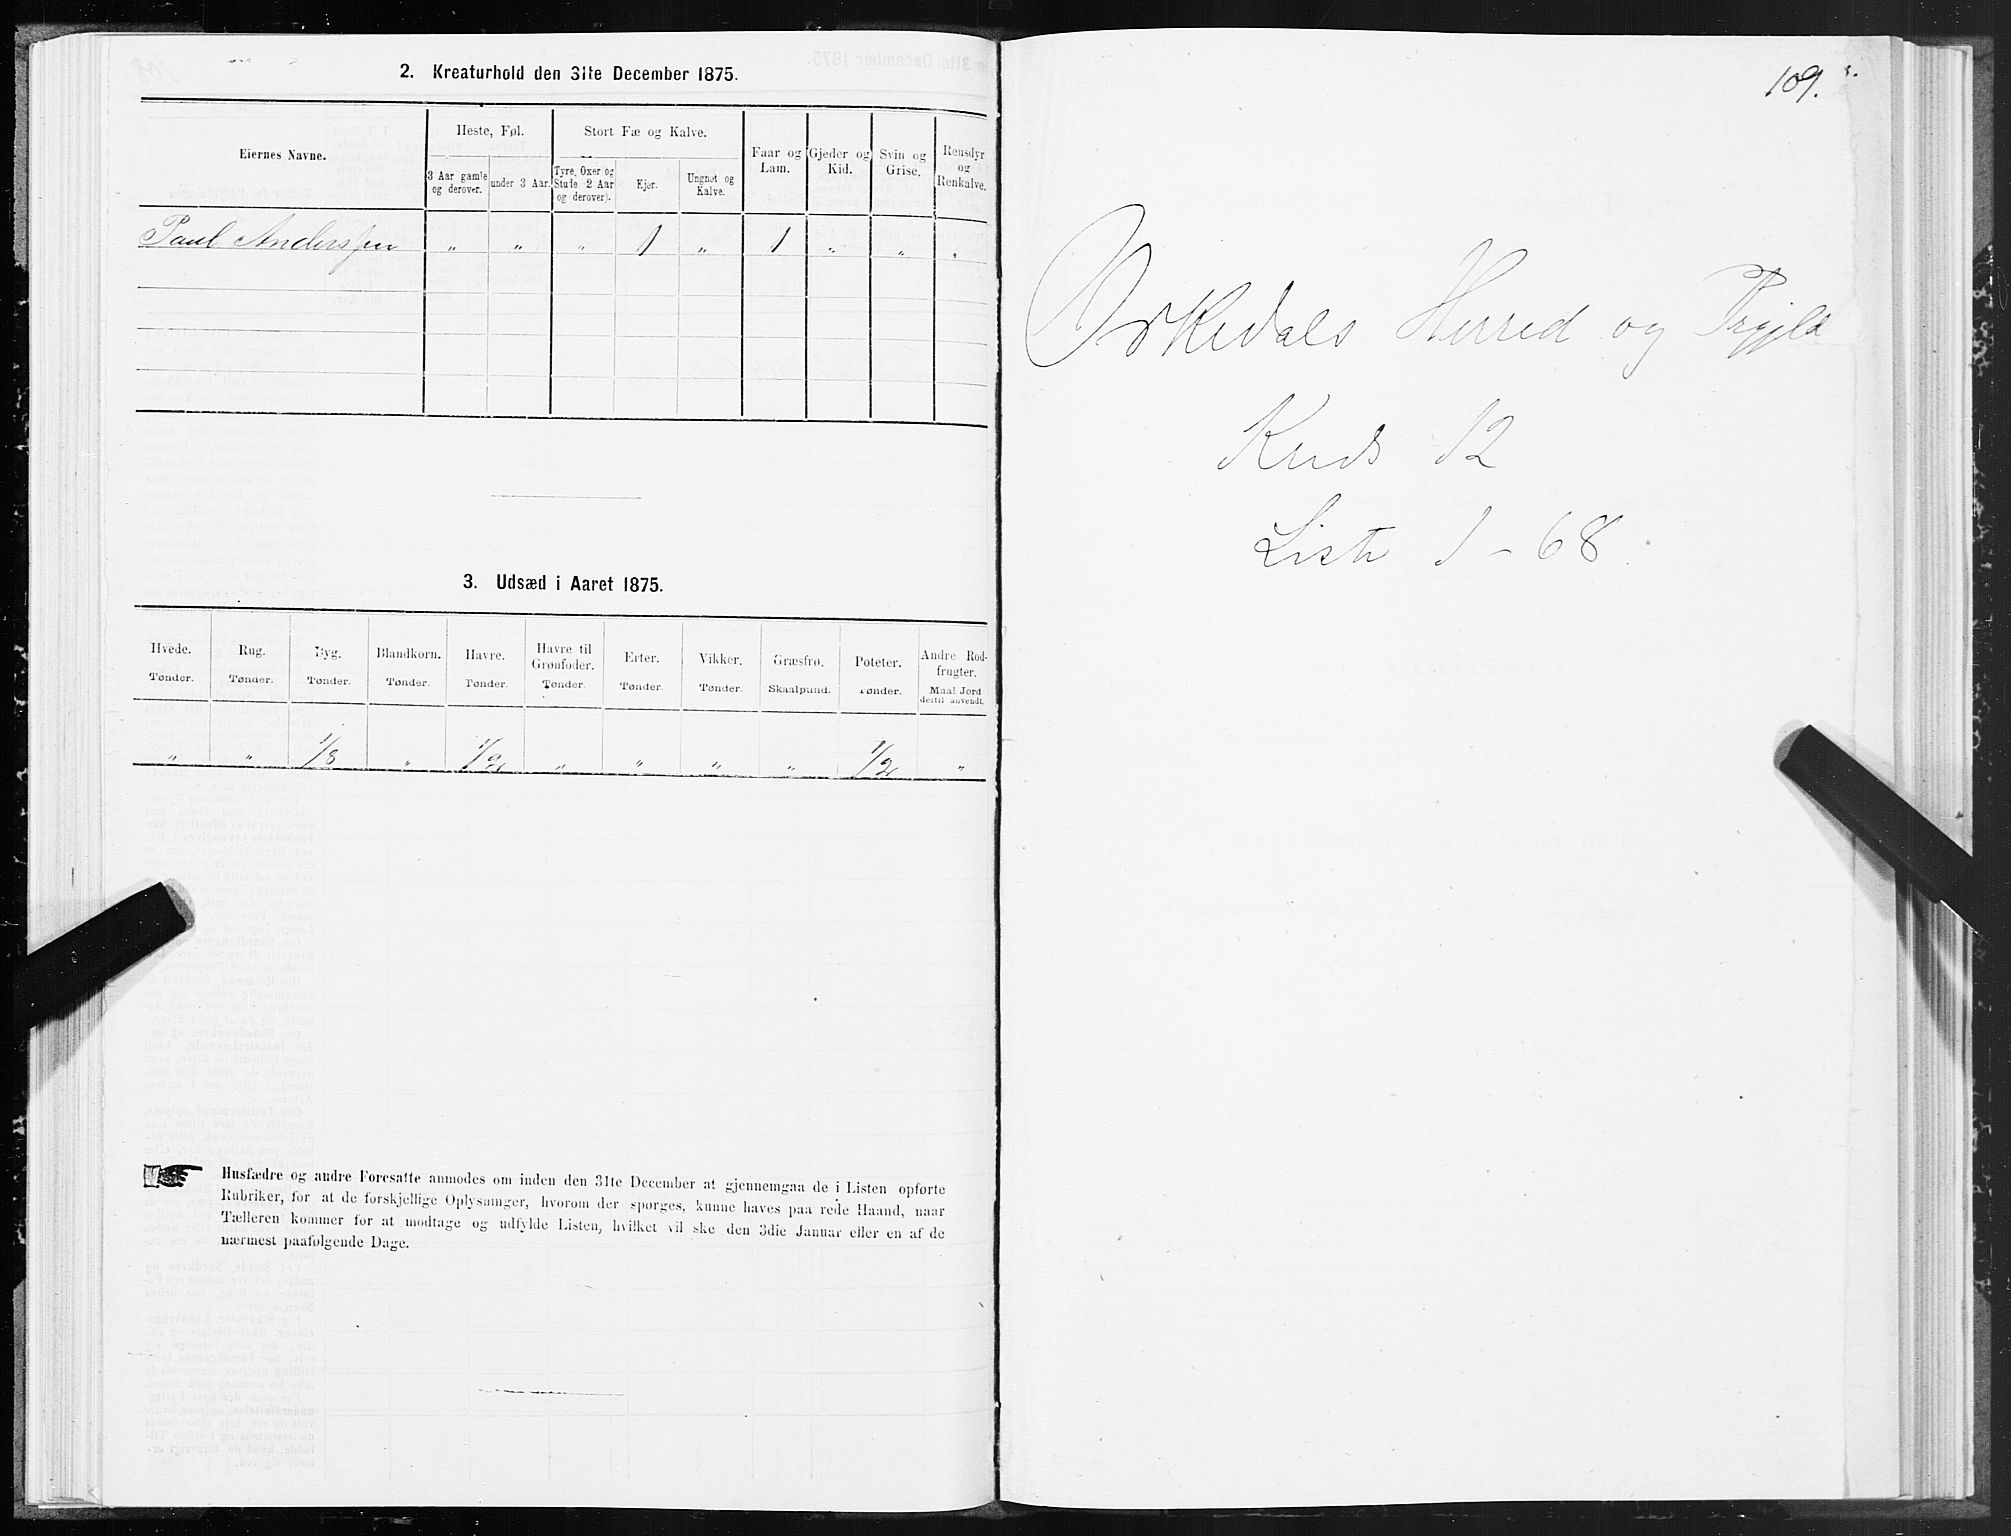 2. Kreaturhold den 31te December 1875.
Eiernes Navne.
Heste, Føl.
Stort Fæ og Kalve.
Faar og Lam.
Gjeder og Kid.
Svin og Grise.
Rensdyr og Renkalve.
3 Aar gamle og derover.
under 3 Aar.
Tyre, Oxer og Stude 2 Aar og derover).
Kjør.
Ungnøt og Kalve.
Paul Anderssen " " " 1 " 1 " " "
3. Udsæd i Aaret 1875.
Hvede. Rug. Byg. Blandkorn. Havre. Havre til Grønfoder. Erter. Vikker. Græsfrø. Poteter. Andre Rodfrugter.
Tønder. Tønder. Tønder. Tønder. Tønder. Tønder. Tønder. Tønder. Skaalpund. Tønder. Maal Jord dertil anvendt.
" " 1/8 " 1/2 " " " " 1/2 "
Husfædre og andre Foresatte anmodes om inden den 31te December at gjennemgaa de i Listen opførte
Rubriker, for at de forskjellige Oplysninger, hvorom der spørges, kunne haves paa rede Haand, naar
Tælleren kommer for at modtage og udfylde Listen, hvilket vil ske den 3die Januar eller en af de
nærmest paafølgende Dage.
109.
Orkedals Herred og Prgjld
Kreds 12
Liste 1-68.